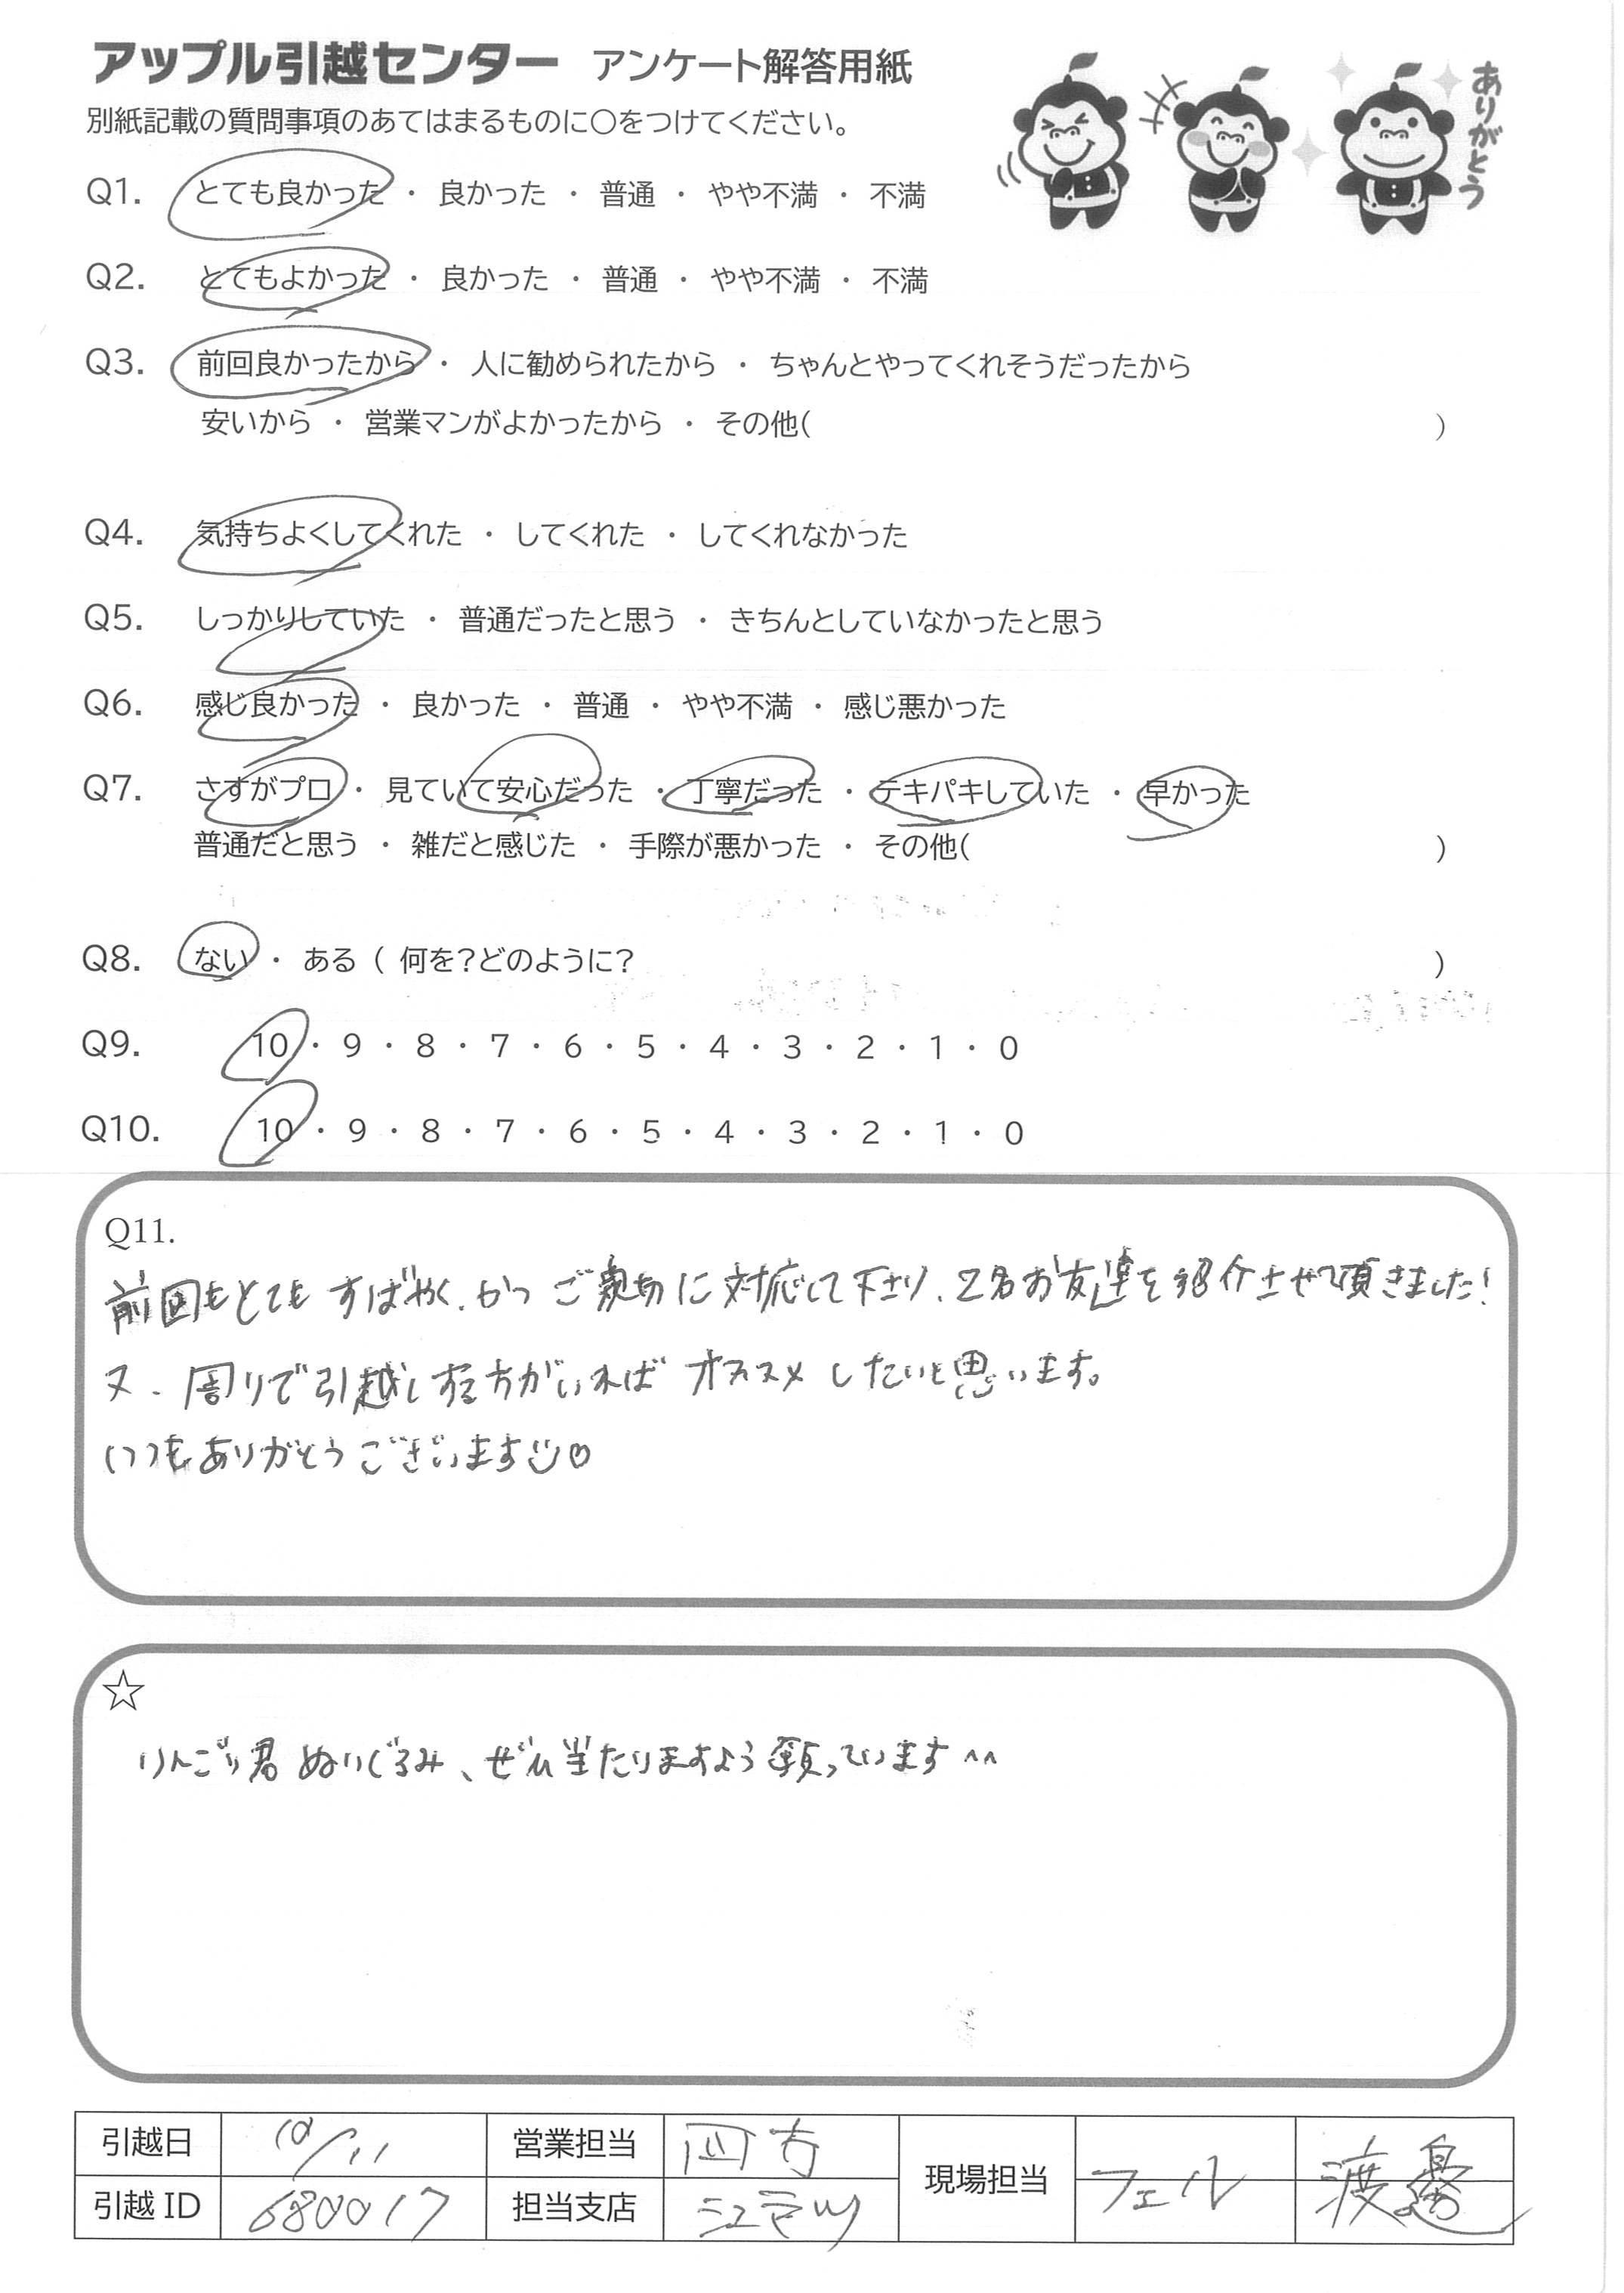 アップル引越センター アンケート解答用紙
ありがとう
別紙記載の質問事項のあてはまるものに〇をつけてください。
Q1. とても良かった ・ 良かった ・ 普通 ・ やや不満 ・ 不満
Q2. とてもよかった ・ 良かった ・ 普通 ・ やや不満 ・ 不満
Q3. 前回良かったから ・ 人に勧められたから ・ ちゃんとやってくれそうだったから
安いから ・ 営業マンがよかったから ・ その他( )
Q4. 気持ちよくしてくれた ・ してくれた ・ してくれなかった
Q5. しっかりしていた ・ 普通だったと思う ・ きちんとしていなかったと思う
Q6. 感じ良かった ・ 良かった ・ 普通 ・ やや不満 ・ 感じ悪かった
Q7. さすがプロ ・ 見ていて安心だった ・ 丁寧だった ・ テキパキしていた ・ 早かった
普通だと思う ・ 雑だと感じた ・ 手際が悪かった ・ その他( )
Q8. ない ・ ある ( 何を?どのように? )
Q9. 10 ・ 9 ・ 8 ・ 7 ・ 6 ・ 5 ・ 4 ・ 3 ・ 2 ・ 1 ・ 0
Q10. 10 ・ 9 ・ 8 ・ 7 ・ 6 ・ 5 ・ 4 ・ 3 ・ 2 ・ 1 ・ 0
Q11.
前回もとても すばやく、かつ ご親切に対応して下さり、2名お友達を紹介させて頂きました!
又、周りで引越しする方がいれば オススメ したいと思います。
いつもありがとうございます♡
☆
りんごり君 ぬいぐるみ、ぜひ当たりますよう願っています^^
引越日 10/11 営業担当 四方 現場担当 フェル 渡邊
引越ID 680017 担当支店